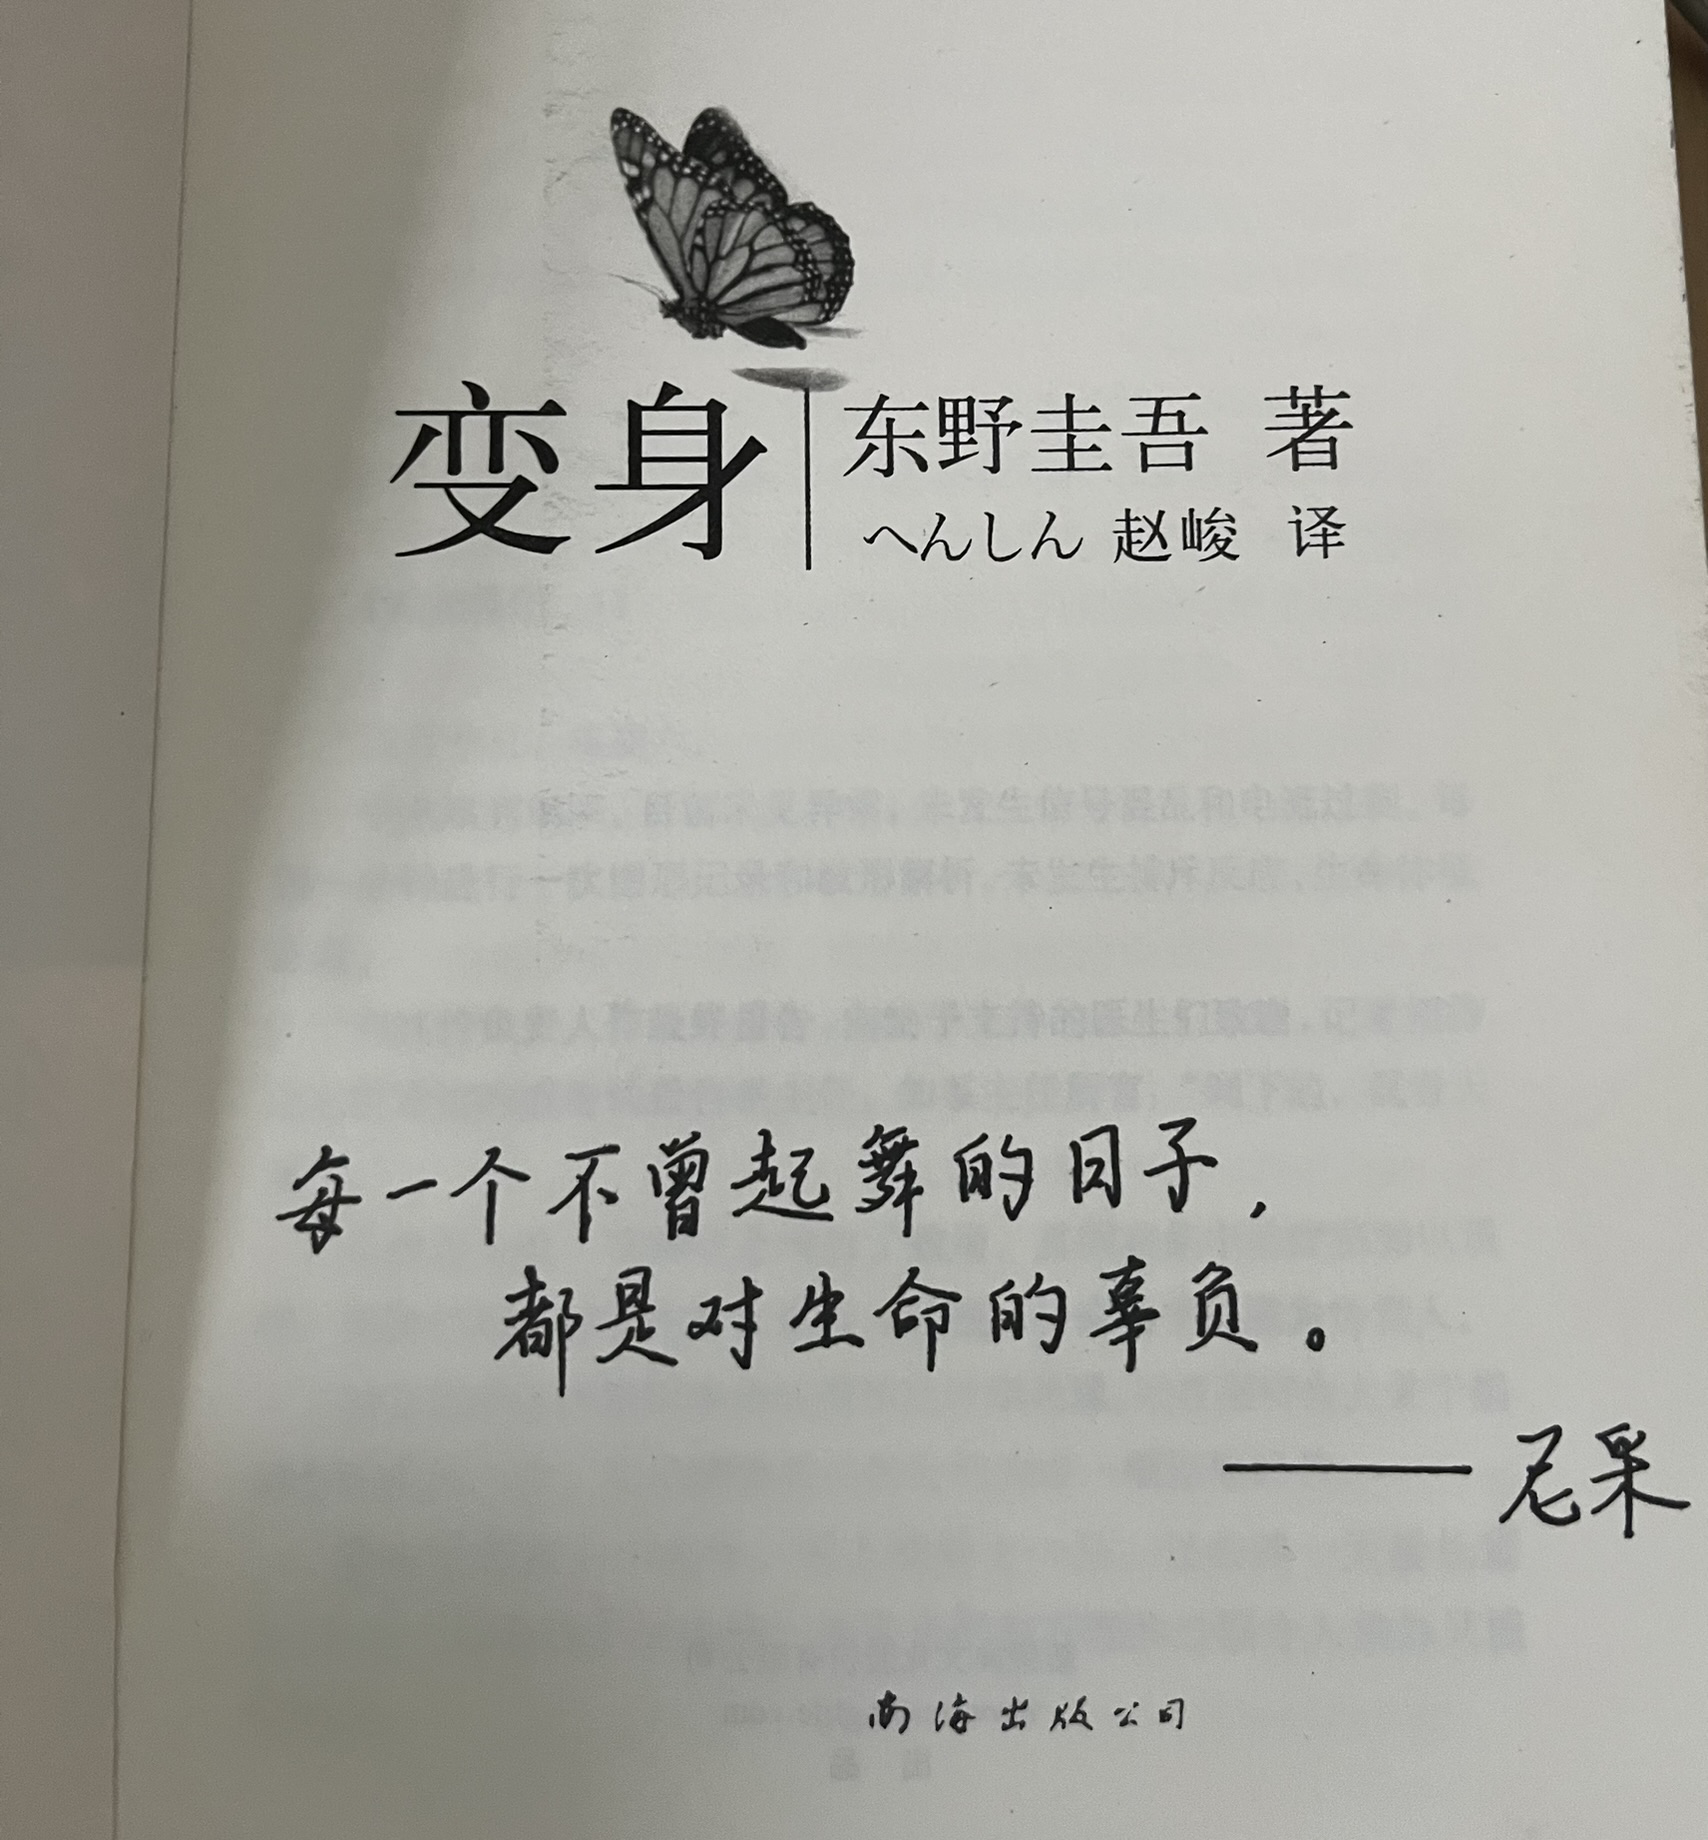 变身
东野圭吾 著
へんしん 赵峻 译
每一个不曾起舞的日子，
都是对生命的辜负。
——尼采
南海出版公司